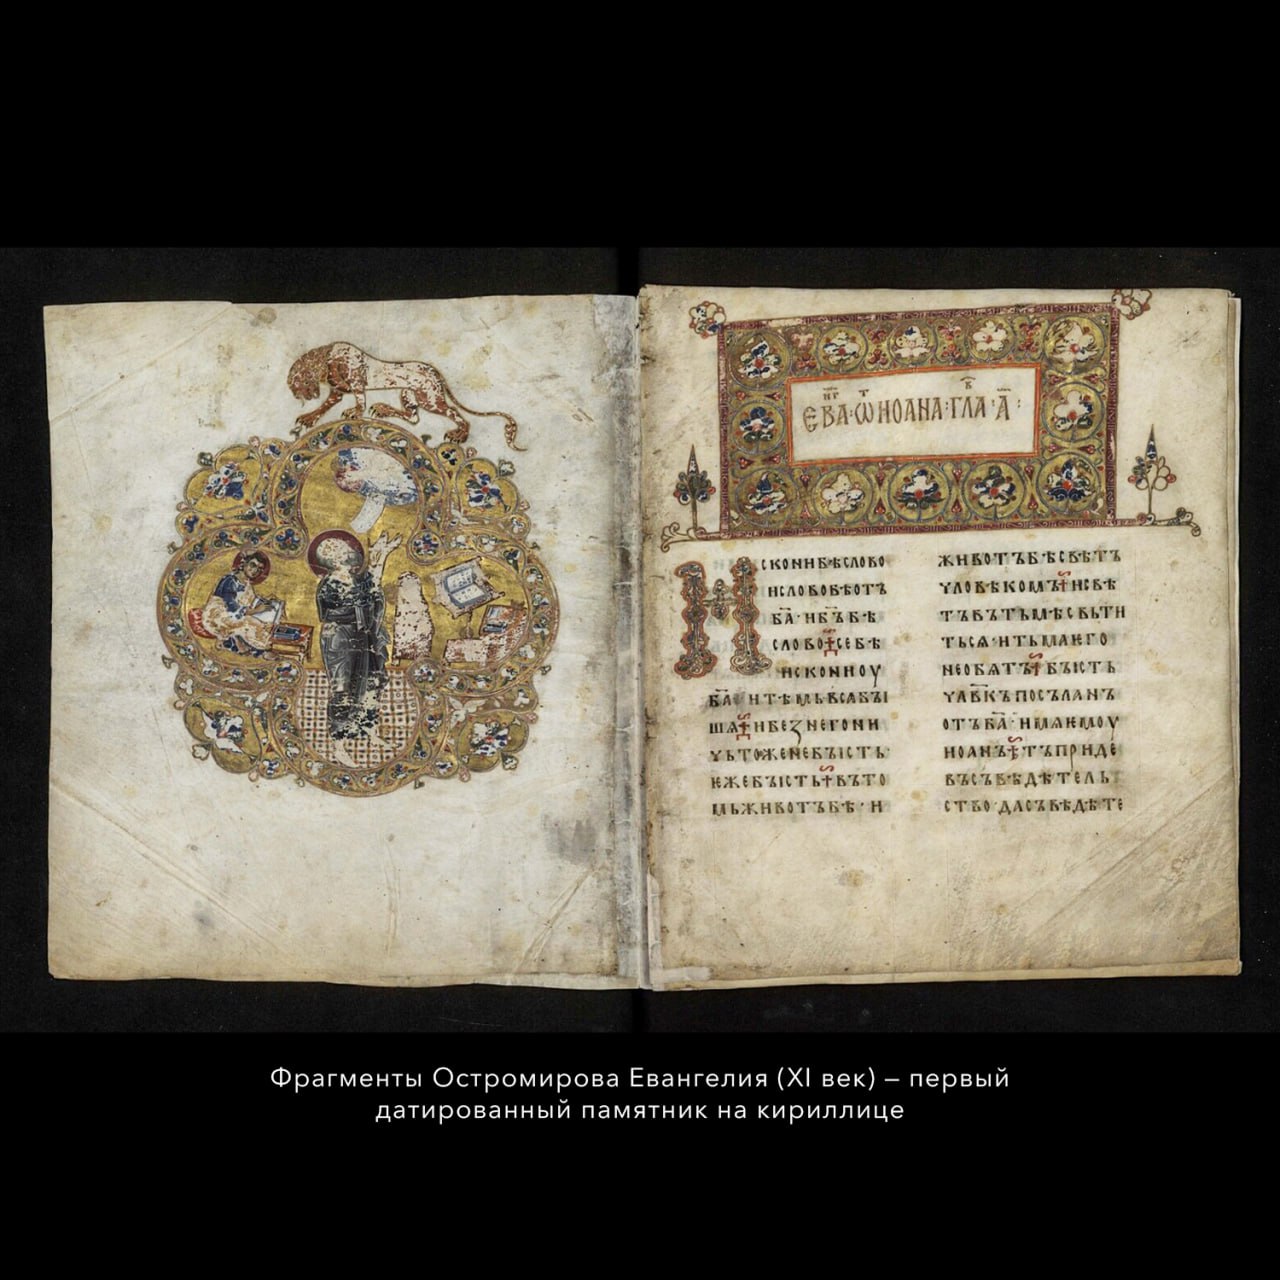 ЕВА·ѾИОАНА·ГЛА·А҃:
Искони бѣ слово
и слово бѣ отъ
б҃а · и б҃ъ бѣ
слово · се бѣ
искони оу
б҃а и тѣмь в҃са бꙑ
шѧ · и без него ни
чьтоже не бꙑсть ·
ѥже бꙑсть · въ то
мь животъ бѣ · и
животъ бѣ свѣтъ
чловѣкомъ · и свѣ
тъ въ тьмѣ свьти
тьсѧ · и тьма ѥго
не обѧтъ · бꙑсть
ч҃лвкъ посъланъ
отъ б҃а · имѧ ѥмоу
иоанъ · тъ приде
въ съвѣдѣтель
ство · да съвѣдѣте
Фрагменты Остромирова Евангелия (XI век) – первый
датированный памятник на кириллице